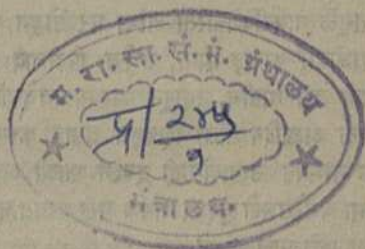 म. रा. सा. सं. मं. ग्रंथालय
प्र/२७५
१
मंत्रालय.